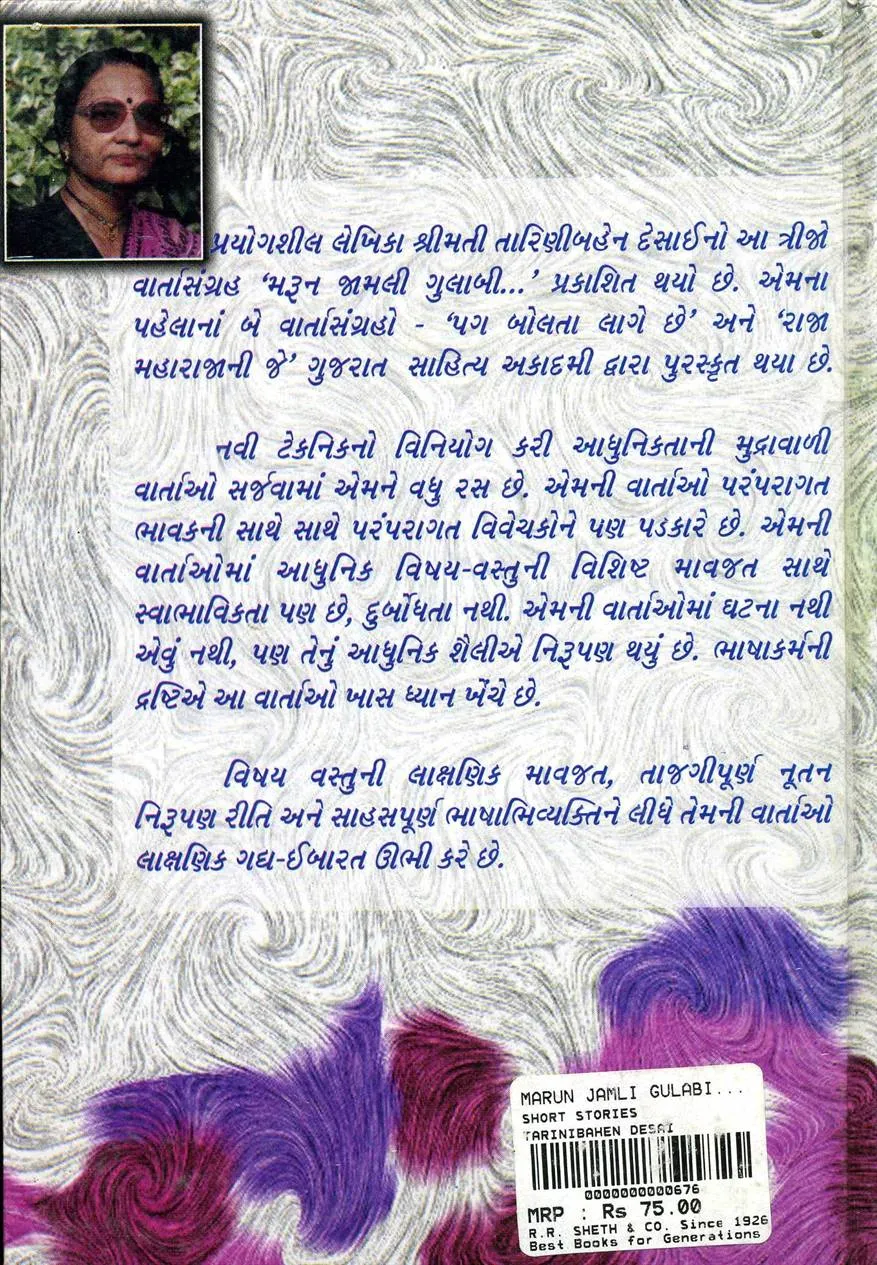 પ્રયોગશીલ લેખિકા શ્રીમતી તારિણીબહેન દેસાઈનો આ ત્રીજો
વાર્તાસંગ્રહ ‘મરૂન જામલી ગુલાબી...’ પ્રકાશિત થયો છે. એમના
પહેલાનાં બે વાર્તાસંગ્રહો - ‘પગ બોલતા લાગે છે’ અને ‘રાજા
મહારાજાની જે’ ગુજરાત સાહિત્ય અકાદમી દ્વારા પુરસ્કૃત થયા છે.
નવી ટેકનિકનો વિનિયોગ કરી આધુનિકતાની મુદ્રાવાળી
વાર્તાઓ સર્જવામાં એમને વધુ રસ છે. એમની વાર્તાઓ પરંપરાગત
ભાવકની સાથે સાથે પરંપરાગત વિવેચકોને પણ પડકારે છે. એમની
વાર્તાઓમાં આધુનિક વિષય-વસ્તુની વિશિષ્ટ માવજત સાથે
સ્વાભાવિકતા પણ છે, દુર્બોધતા નથી. એમની વાર્તાઓમાં ઘટના નથી
એવું નથી, પણ તેનું આધુનિક શૈલીએ નિરૂપણ થયું છે. ભાષાકર્મની
દ્રષ્ટિએ આ વાર્તાઓ ખાસ ધ્યાન ખેંચે છે.
વિષય વસ્તુની લાક્ષણિક માવજત, તાજગીપૂર્ણ નૂતન
નિરૂપણ રીતિ અને સાહસપૂર્ણ ભાષાભિવ્યક્તિને લીધે તેમની વાર્તાઓ
લાક્ષણિક ગદ્ય-ઈબારત ઊભી કરે છે.
MARUN JAMLI GULABI...
SHORT STORIES
TARINIBAHEN DESAI
0000000000676
MRP : Rs 75.00
R.R. SHETH & CO. Since 1926
Best Books for Generations